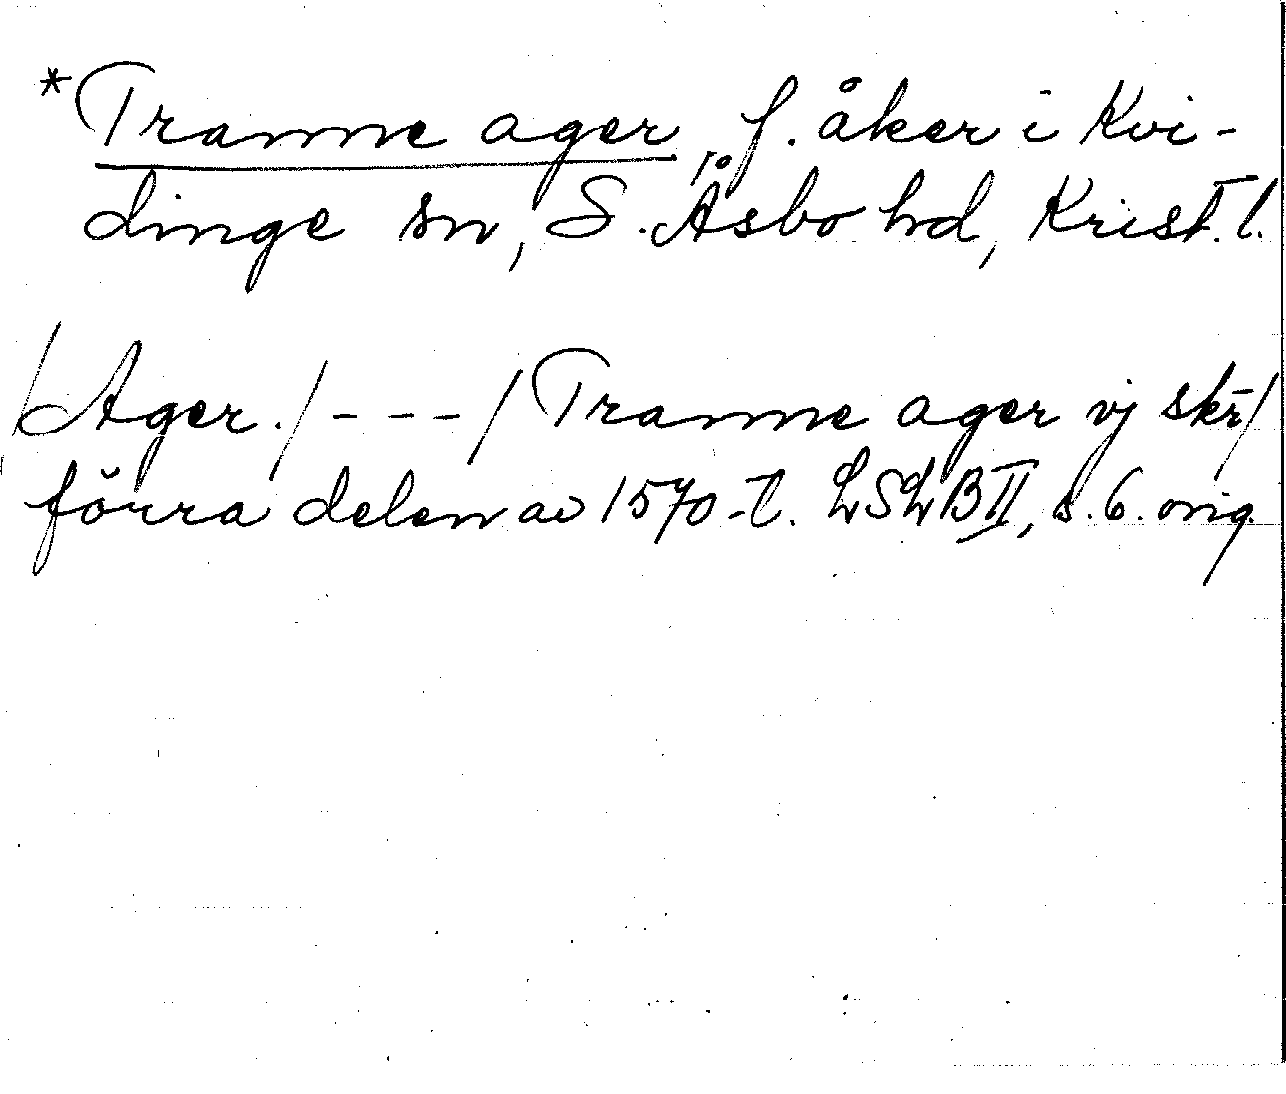 *Tranne ager, f. åker i Kvi-
dinge sn, S. Åsbo hd, Krist. l.
/Ager./ - - - / Tranne ager vj skr/
förra delen av 1570-t. LSLB II, s. 6. orig.